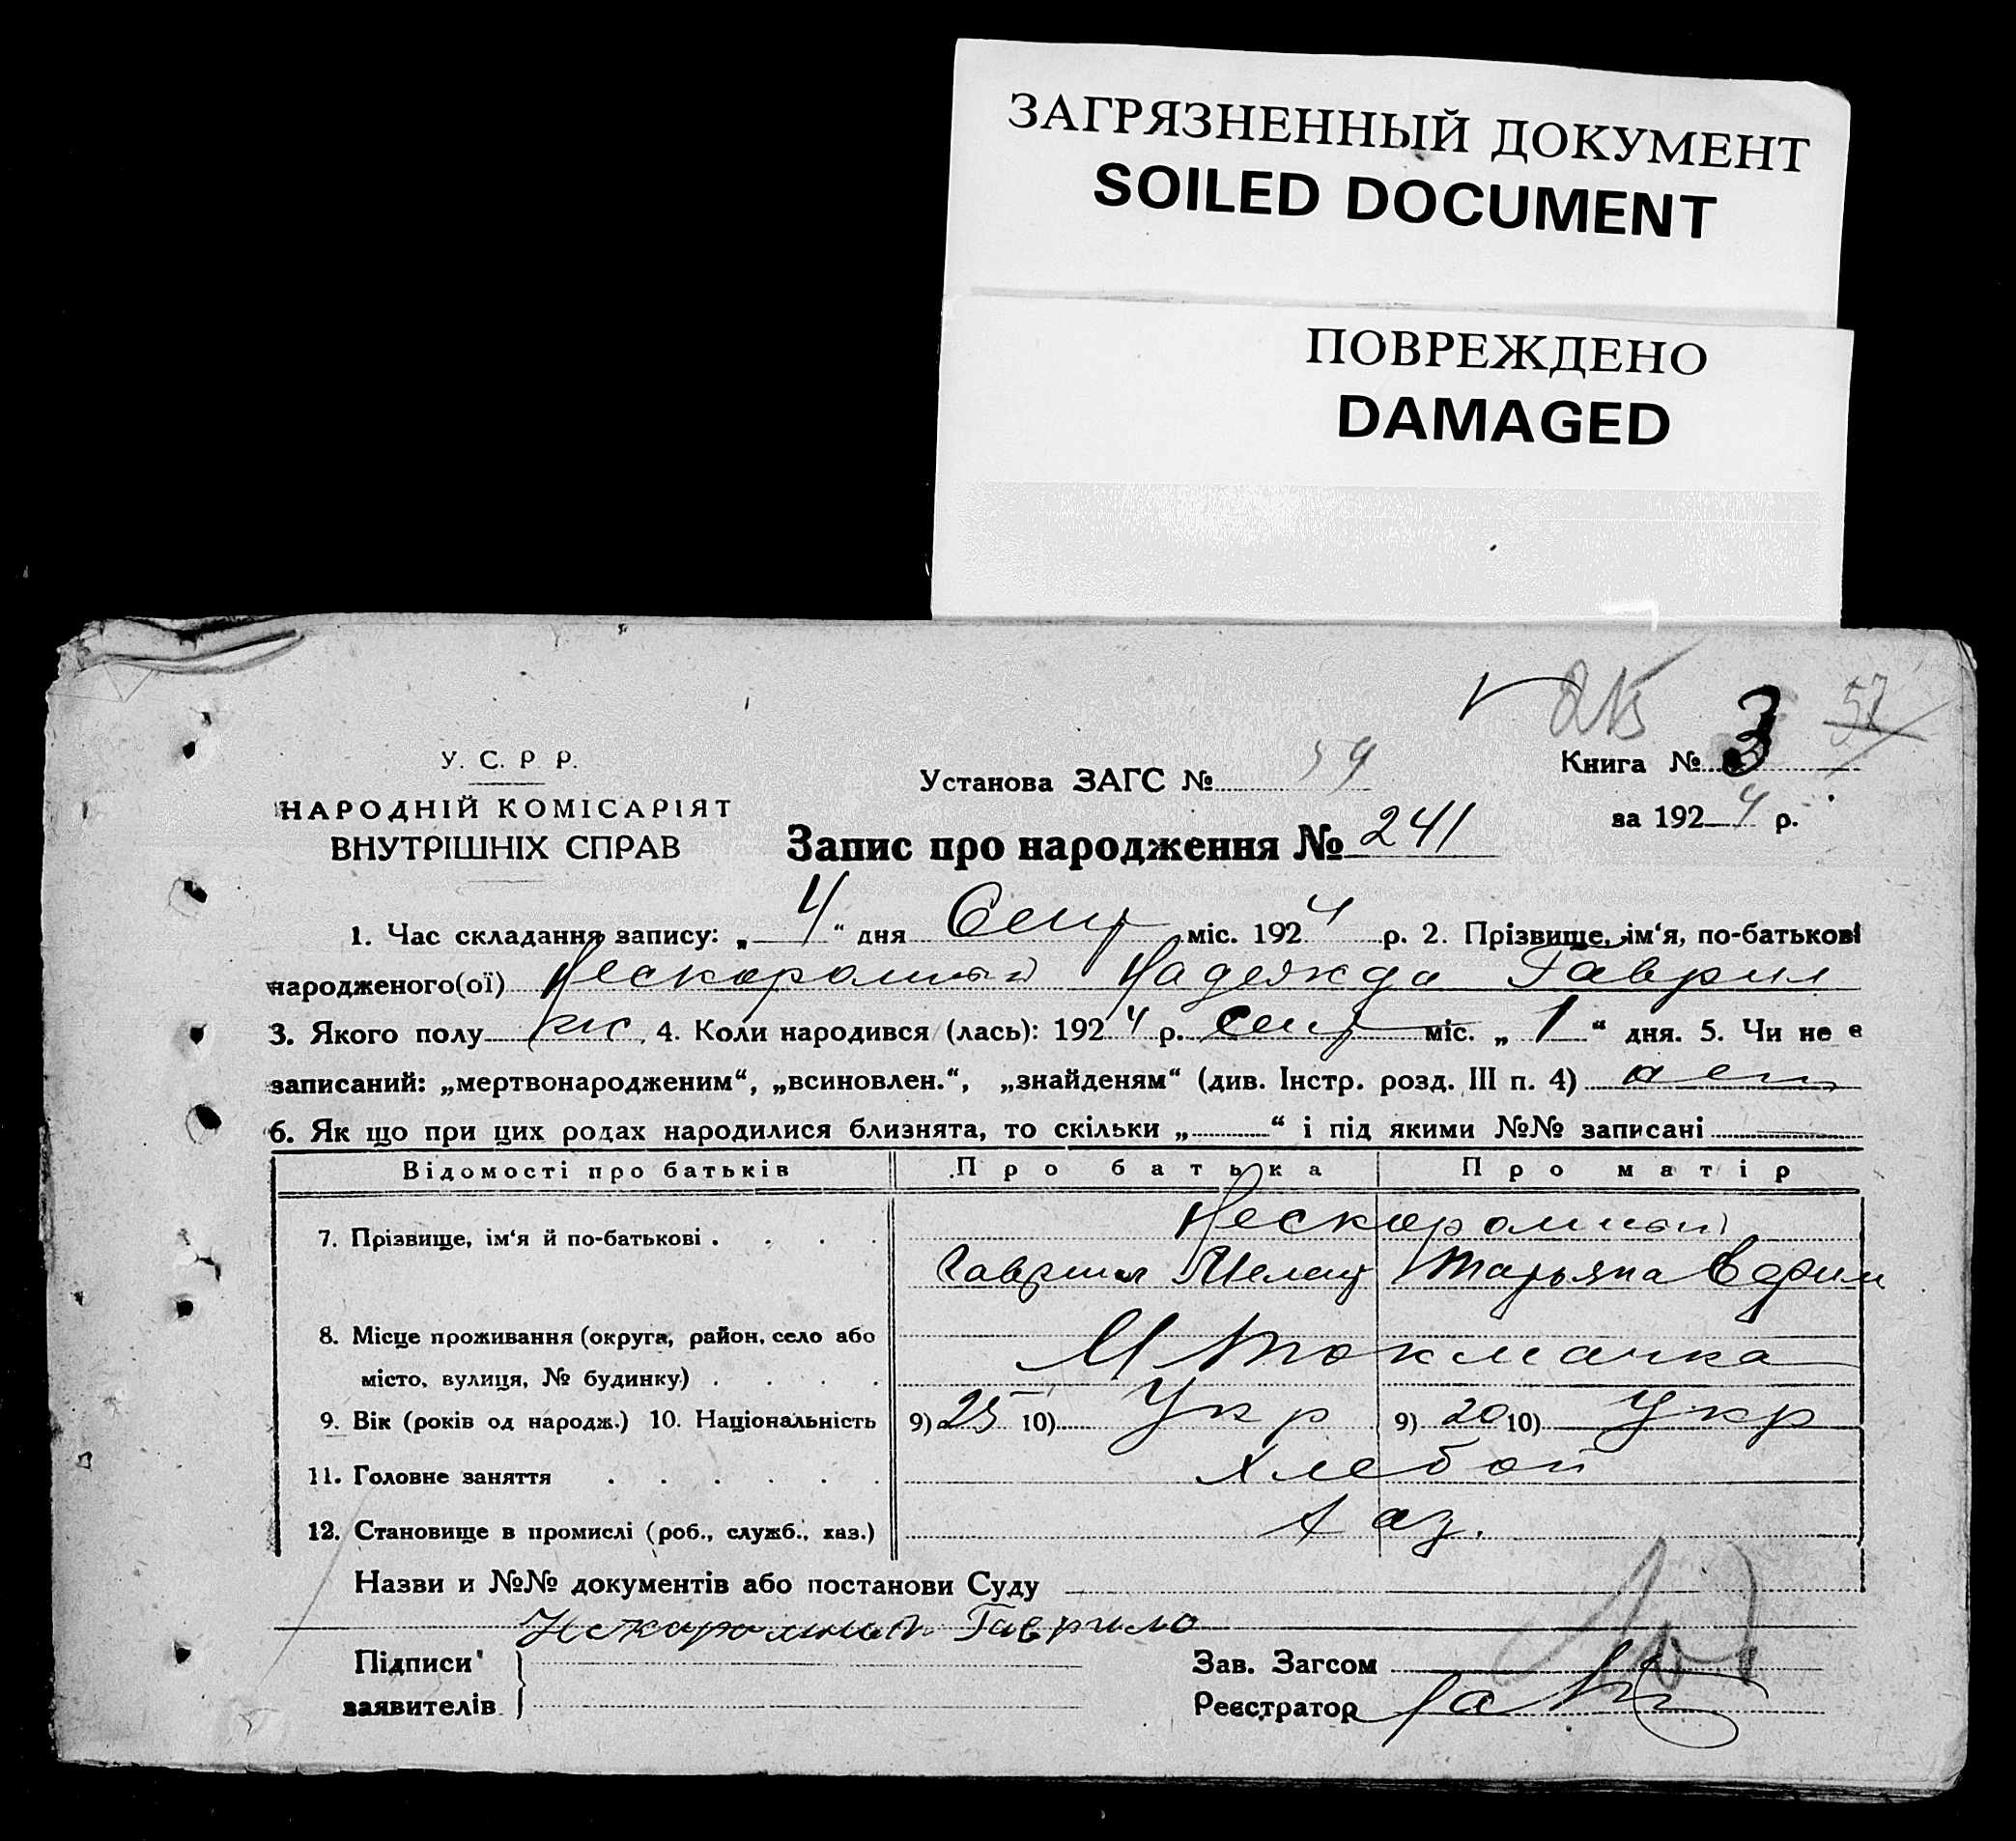 ЗАГРЯЗНЕННЫЙ ДОКУМЕНТ
SOILED DOCUMENT
ПОВРЕЖДЕНО
DAMAGED
3 57
У. С. Р Р.
Установа ЗАГС № 59 Книга №
НАРОДНІЙ КОМІСАРІЯТ
за 1924 р.
ВНУТРІШНІХ СПРАВ
Запис про народження № 241
1. Час складання запису: „4“ дня Сент міс. 1924 р. 2. Прізвище, ім‘я, по-батькові
народженого(ої) Нескоромный Надежда Гаврил
3. Якого полу жс 4. Коли народився (лась): 1924 р. Сент міс. „1“ дня. 5. Чи не є
записаний: „мертвонародженим“, „всиновлен.“, „знайденям“ (див. Інстр. розд. III п. 4)
6. Як що при цих родах народилися близнята, то скільки „ “ і під якими №№ записані
Відомості про батьків Про батька Про матір
Нескоромный
7. Прізвище, ім‘я й по-батькові
Гаврил Мелент Татьяна Ефим
8. Місце проживання (округа, район, село або
М Токмачка
місто, вулиця, № будинку)
9. Вік (років од народж.) 10. Національність 9) 25 10) Укр 9) 20 10) Укр
11. Головне заняття Хлебоп
12. Становище в промислі (роб., служб., хаз.) хаз.
Назви и №№ документів або постанови Суду
Нескоромный Гаврило
Підписи Зав. Загсом
заявителів Реєстратор